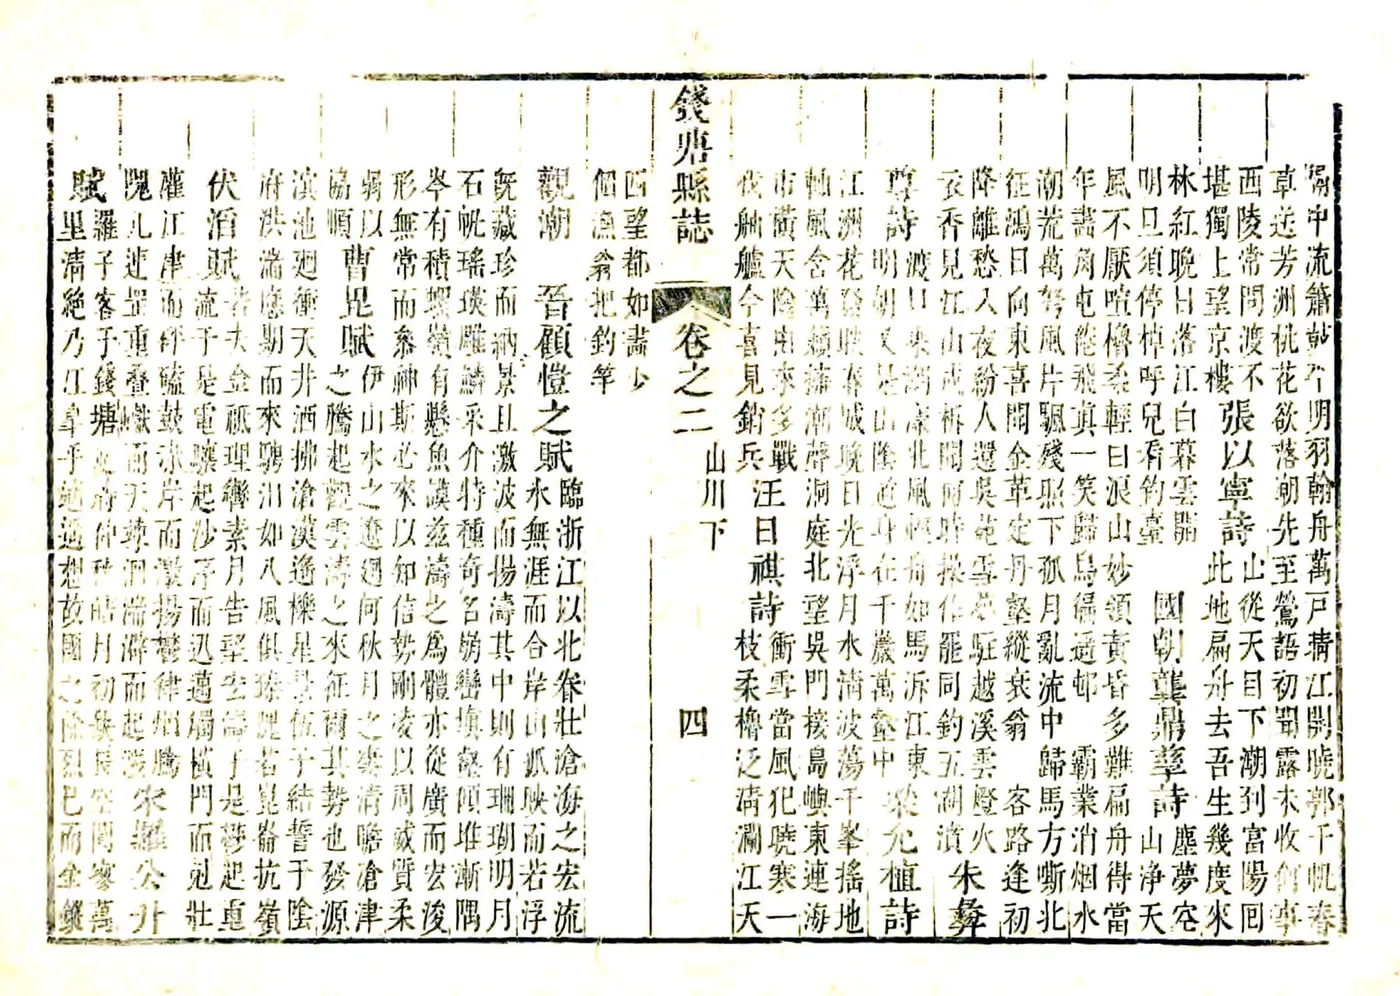 隔中流簫鼓个明羽翰舟萬戸精江開曉郭千帆春
草送芳洲桃花欲落潮先至鶯語初聞露未收信事
西陵常問渡不
堪獨上望京樓
張以寧詩
山從天目下潮到富陽囘
此地扁舟去吾生幾度來
林紅晚日落江白暮雲開
明旦須停棹呼兒看釣臺
國朝龔鼎孳詩
塵夢空
山淨天
風不厭喧櫓柔輕曰浪山妙領黃昏多難扁舟得當
年畫角屯能飛眞一笑歸鳥偏通邨 霸業消烟水
潮荒萬弩風片颿殘照下孤月亂流中歸馬方嘶北
征鴻日向東喜聞金革定丹壑縱衰翁 客路逢初
降離愁入夜紛人還吳苑雪 駐越溪雲燈火
衣香見江山戍柝聞何時操作罷同釣五湖濆
朱彝
尊詩
渡口乘潮漲北風輕舟如馬泝江東
明朝又是山陰道身在千巖萬壑中
梁允植詩
江洲花發映春城晚日光浮月水清波蕩千峯搖地
軸風含萬籟捲潮聲洞庭北望吳門接島嶼東連海
市橫天陰雨來多戰
伐舳艫今喜見銷兵
汪日祺詩
衝雪當風犯曉寒一
枝柔櫓泛清瀾江天
錢唐縣誌 卷之二 山川下 四
四望都如畫少
個漁翁把釣竿
觀潮
晉顧愷之賦
臨浙江以北眷壯滄海之宏流
水無涯而合岸山孤映而若浮
旣藏珍而納景且激波而揚濤其中則有珊瑚明月
石帆瑤瑛雕鱗采介特種奇名崩巒塡壑傾堆漸隅
岑有積螺嶺有懸魚謨茲濤之爲體亦從廣而宏浚
形無常而參神斯必來以知信勢剛凌以周威質柔
弱以
協順
曹毘賦
伊山水之遼迥何秋月之凄清瞻滄津
之騰起觀雲濤之來征爾其勢也發源
滇池廻衝天井洒拂滄漢遙櫟星景伍子結誓于陰
府洪湍應期而來騁汨如八風俱臻隗若崑崙抗嶺
伏滔賦
若夫金祗理轡素月告望宏濤于是鬱起重
流于是電驤起沙亭而迅邁觸橫門而剋壯
灌江津而砰磕鼓赤岸而激揚鬱律烟騰
隗兀連罡重疊巘而天竦洄湍澼而起漲
宋羅公升
賦
羅子客于錢塘 府仲秋皓月初 長空閴寥萬
里清絶乃江皐乎逍遥想故國之餘烈巴而金